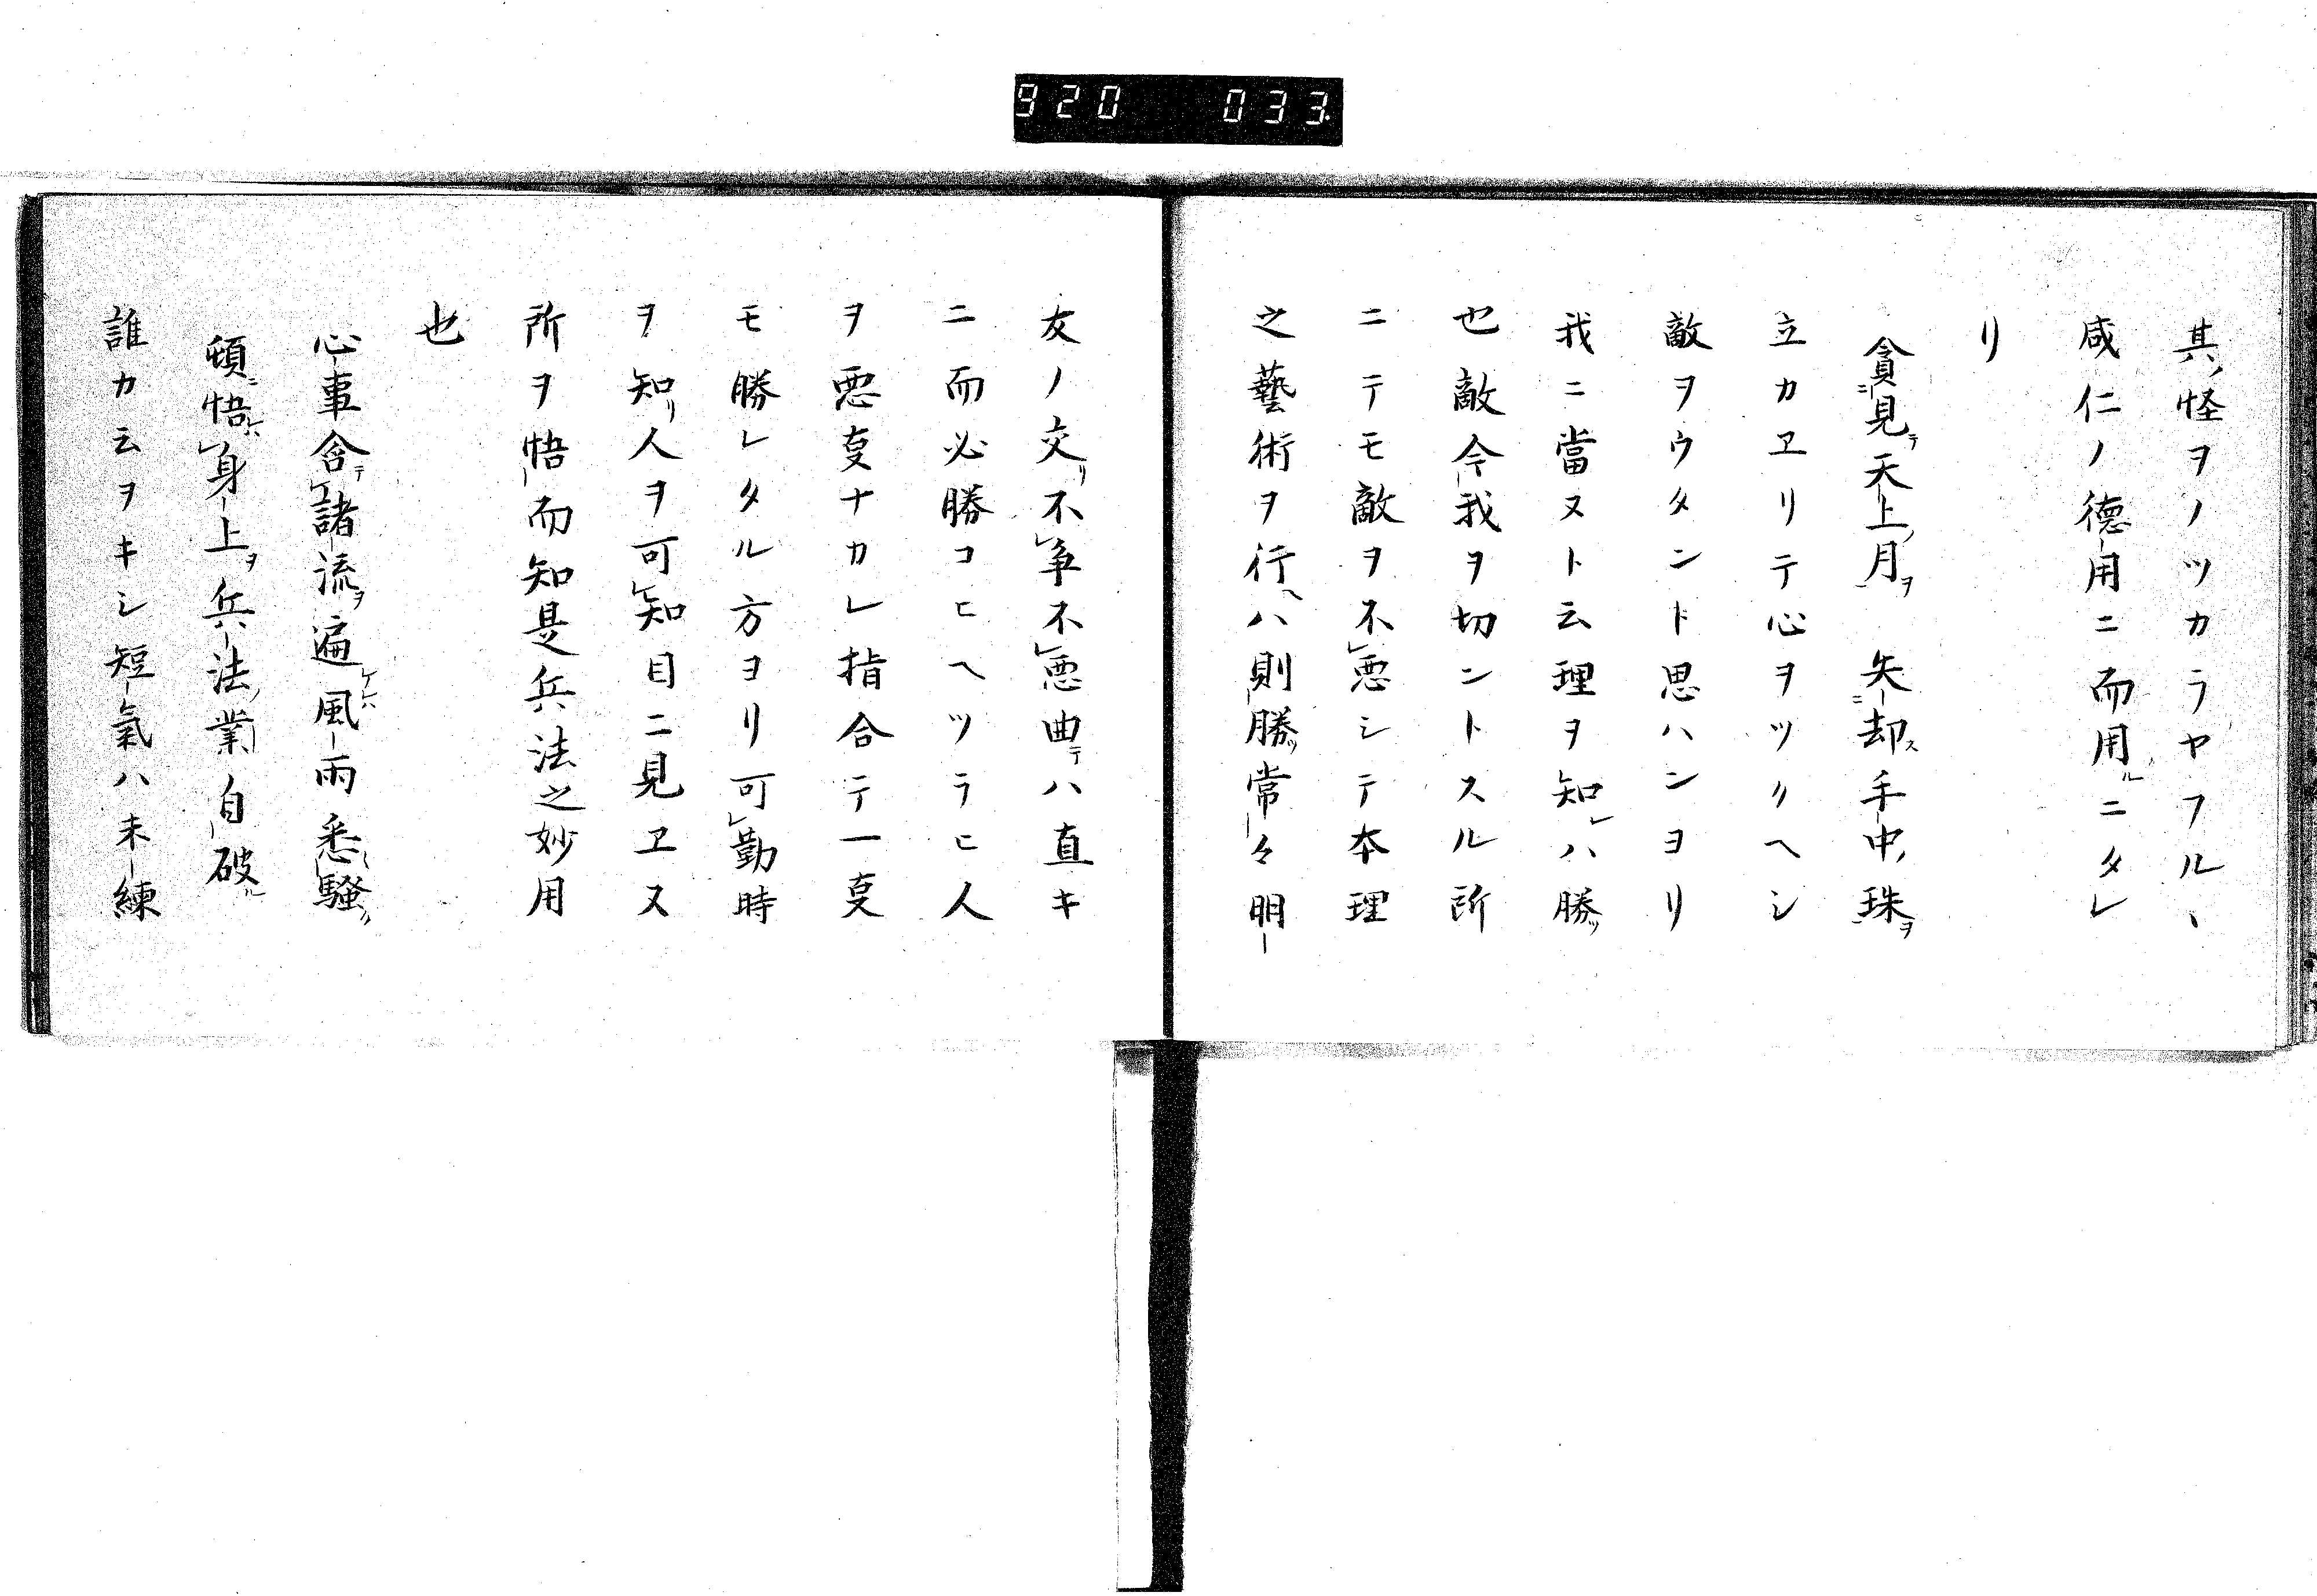 920 033
其ノ怪ヲノツカラヤフルヽ
咸仁ノ德用ニ而用ルニタレ
リ
貪ニ見テ天上ノ月ヲ 失ニ却ス手中ノ珠ヲ
立カヱリテ心ヲツクヘシ
敵ヲウタント思ハンヨリ
我ニ當ヌト云理ヲ知レハ勝ツ
也敵今我ヲ切ントスル所
ニテモ敵ヲ不レ悪シテ本理
之藝術ヲ行ヘハ則勝ツ常々明
友ノ交リ不レ争不レ悪曲テハ直キ
ニ而必勝コヒヘツラヒ人
ヲ悪㕝ナカレ指合テ一㕝
モ勝レタル方ヨリ可レ勤時
ヲ知リ人ヲ可レ知目ニ見ヱス
所ヲ悟而知是兵法之妙用
也
心事含テ諸流ヲ遍ケレハ風雨悉ク騒ク
頓ニ悟レハ身上ヲ兵法ノ業自破ル
誰カ云ヲキシ短氣ハ未練